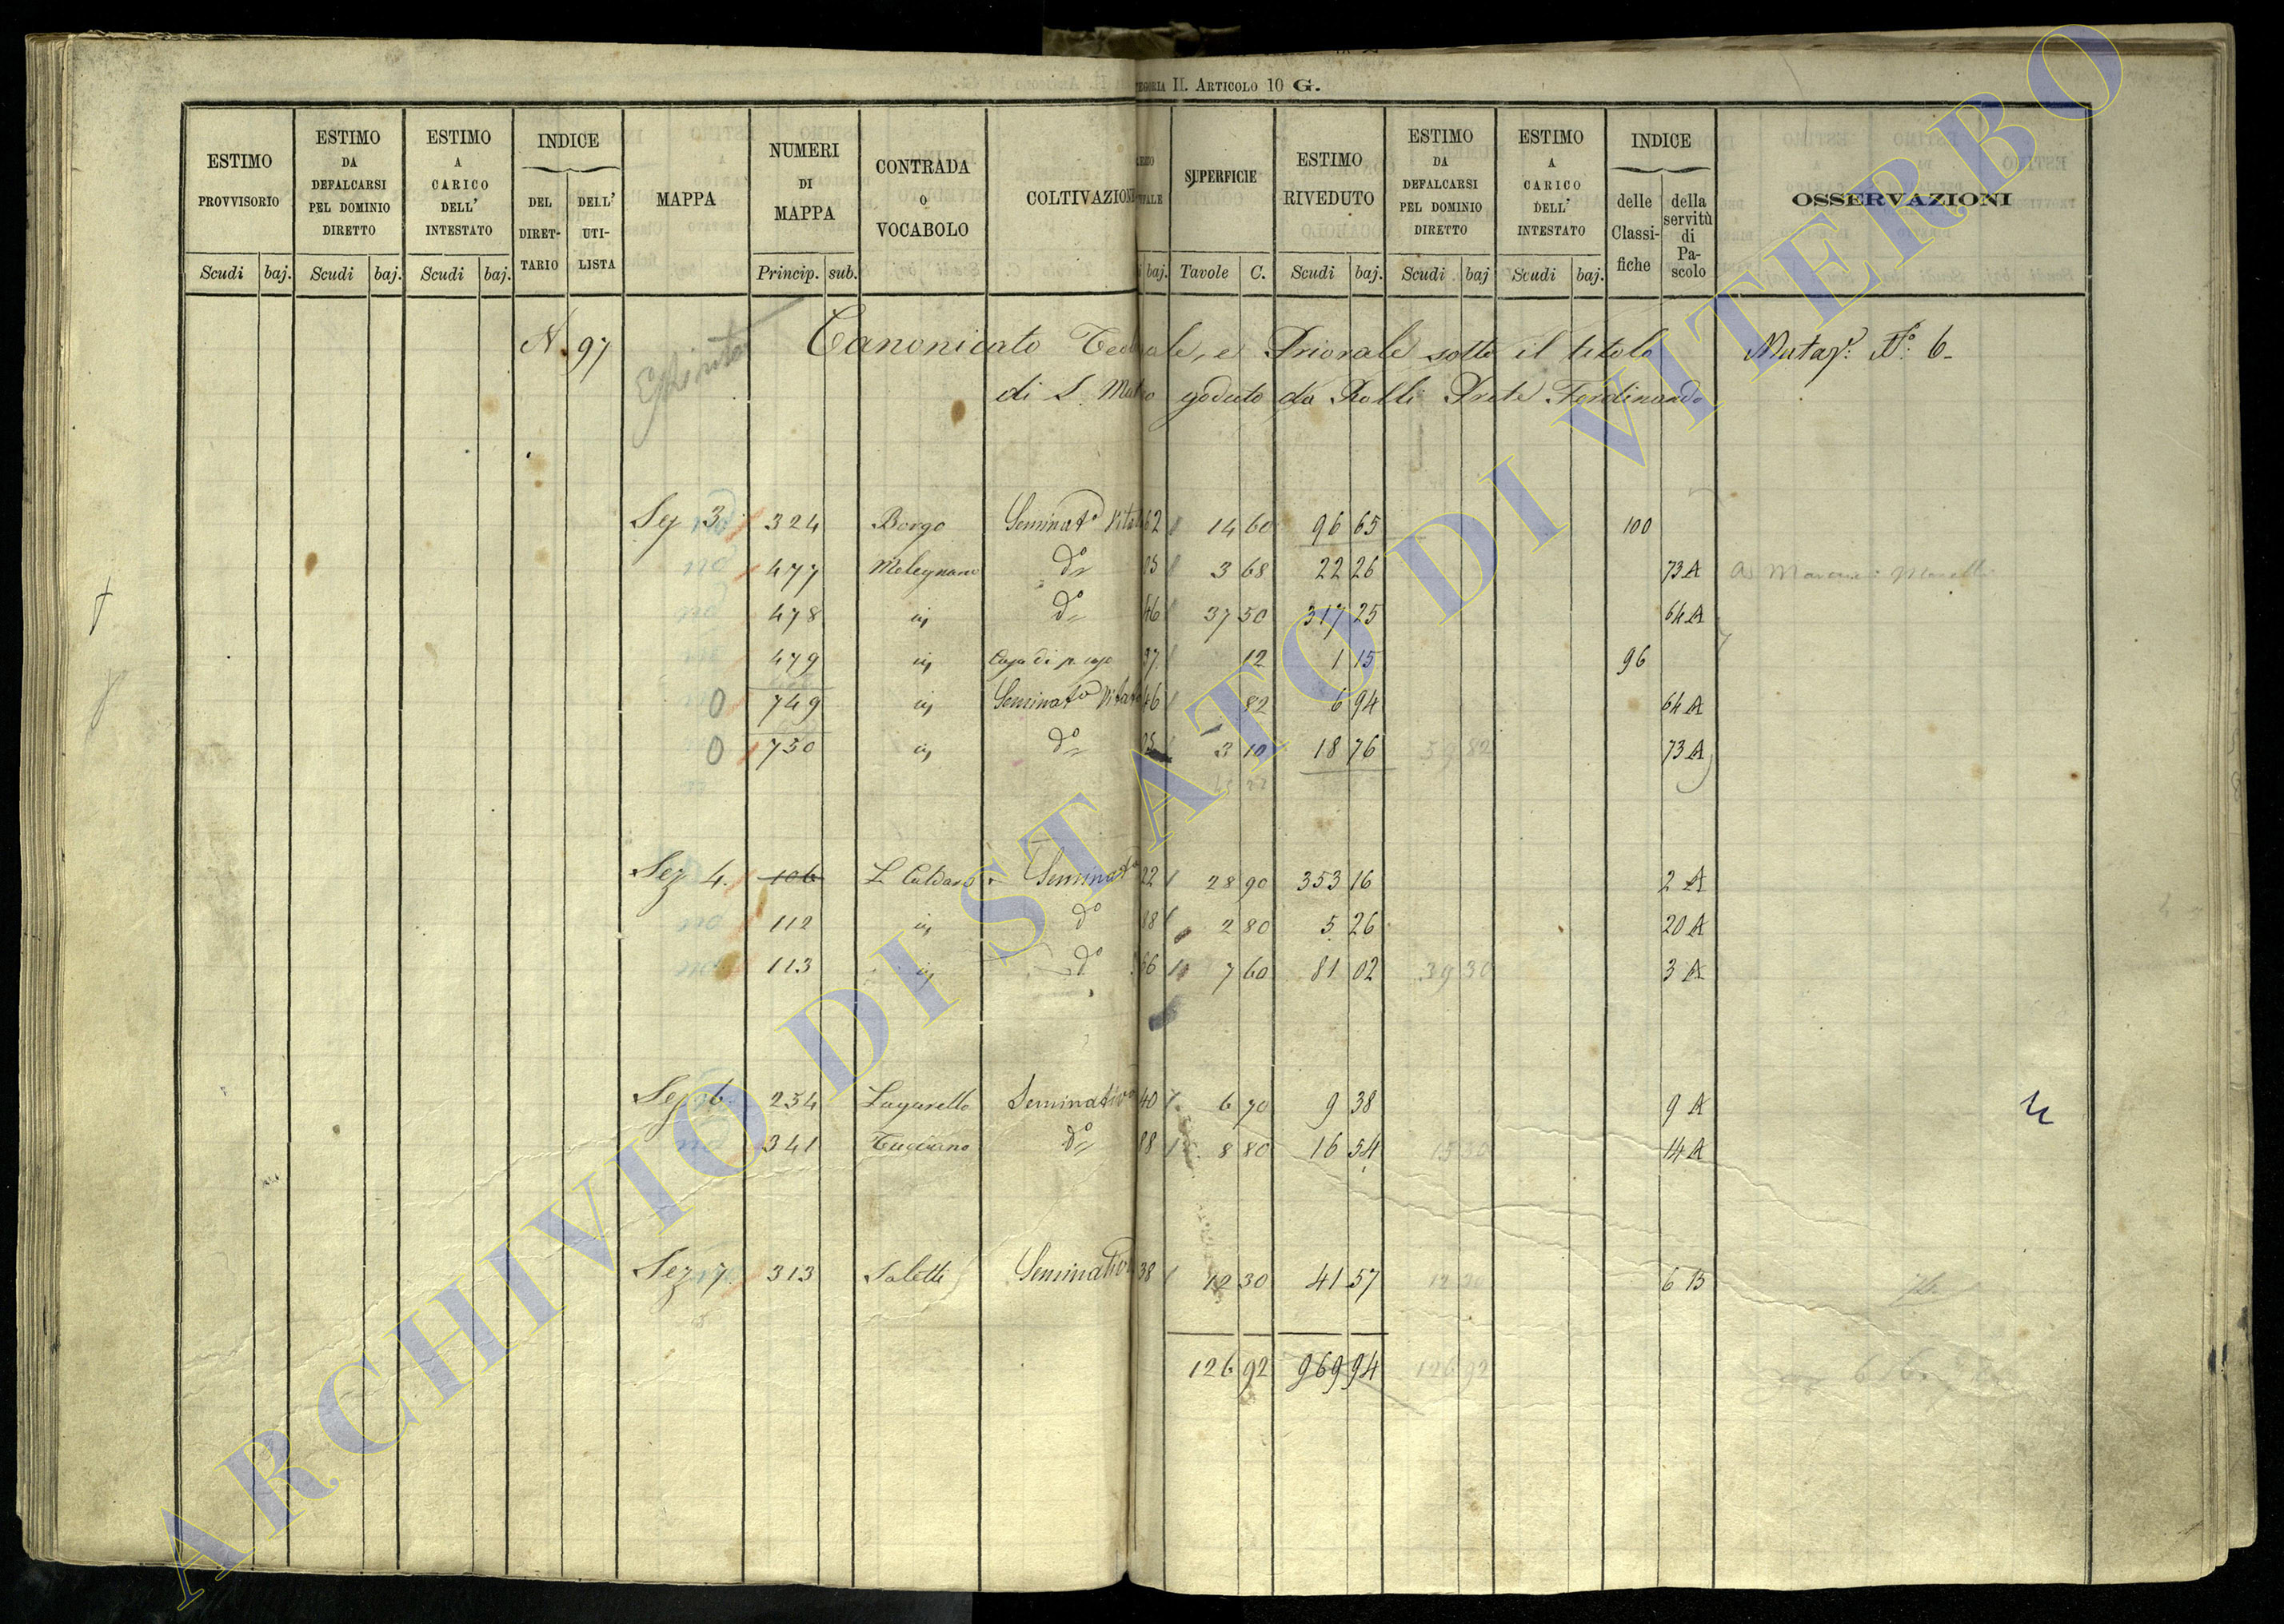 EGORIA II. ARTICOLO 10 G.
ESTIMO PROVVISORIO Scudi baj.
ESTIMO DA DEFALCARSI PEL DOMINIO DIRETTO Scudi baj.
ESTIMO A CARICO DELL' INTESTATO Scudi baj.
INDICE DEL DIRET-TARIO DELL' UTI-LISTA
MAPPA
NUMERI DI MAPPA Princip. sub.
CONTRADA O VOCABOLO
COLTIVAZIONE
baj.
SUPERFICIE Tavole C.
ESTIMO RIVEDUTO Scudi baj.
ESTIMO DA DEFALCARSI PEL DOMINIO DIRETTO Scudi baj
ESTIMO A CARICO DELL' INTESTATO Scudi baj.
INDICE delle Classi-fiche della servitù di Pa-scolo
OSSERVAZIONI
N. 97 Canonicato Teologale, e Priorale sotto il titolo Mutaz: N°: 6
di S. Matteo goduto da Rolli Prete Ferdinando
Sez 3. 324 Borgo Seminat° Vitato 62 14 60 96 65 100
477 Molegnano d° 05 3 68 22 26 73 A
478 in d° 46 37 50 317 25 64 A
479 in Casa di p. uso 37 12 1 15 96
0 749 in Seminat° Vitato 46 82 6 94 64 A
0 750 in d° 05 3 10 18 76 59 82 73 A
Sez 4. 106 Seminat° 22 28 90 353 16 2 A
112 in d° 88 2 80 5 26 20 A
113 in d° 66 7 60 81 02 39 30 3 A
Sez 6. 254 Lagarello Seminativo 40 6 70 9 38 9 A
341 Tucciano d° 88 8 80 16 54 15 50 14 A
Sez 7. 313 Saletti Seminativo 38 12 30 41 57 12 30 6 B
126 92 969 94 126 92
ARCHIVIO DI STATO DI VITERBO